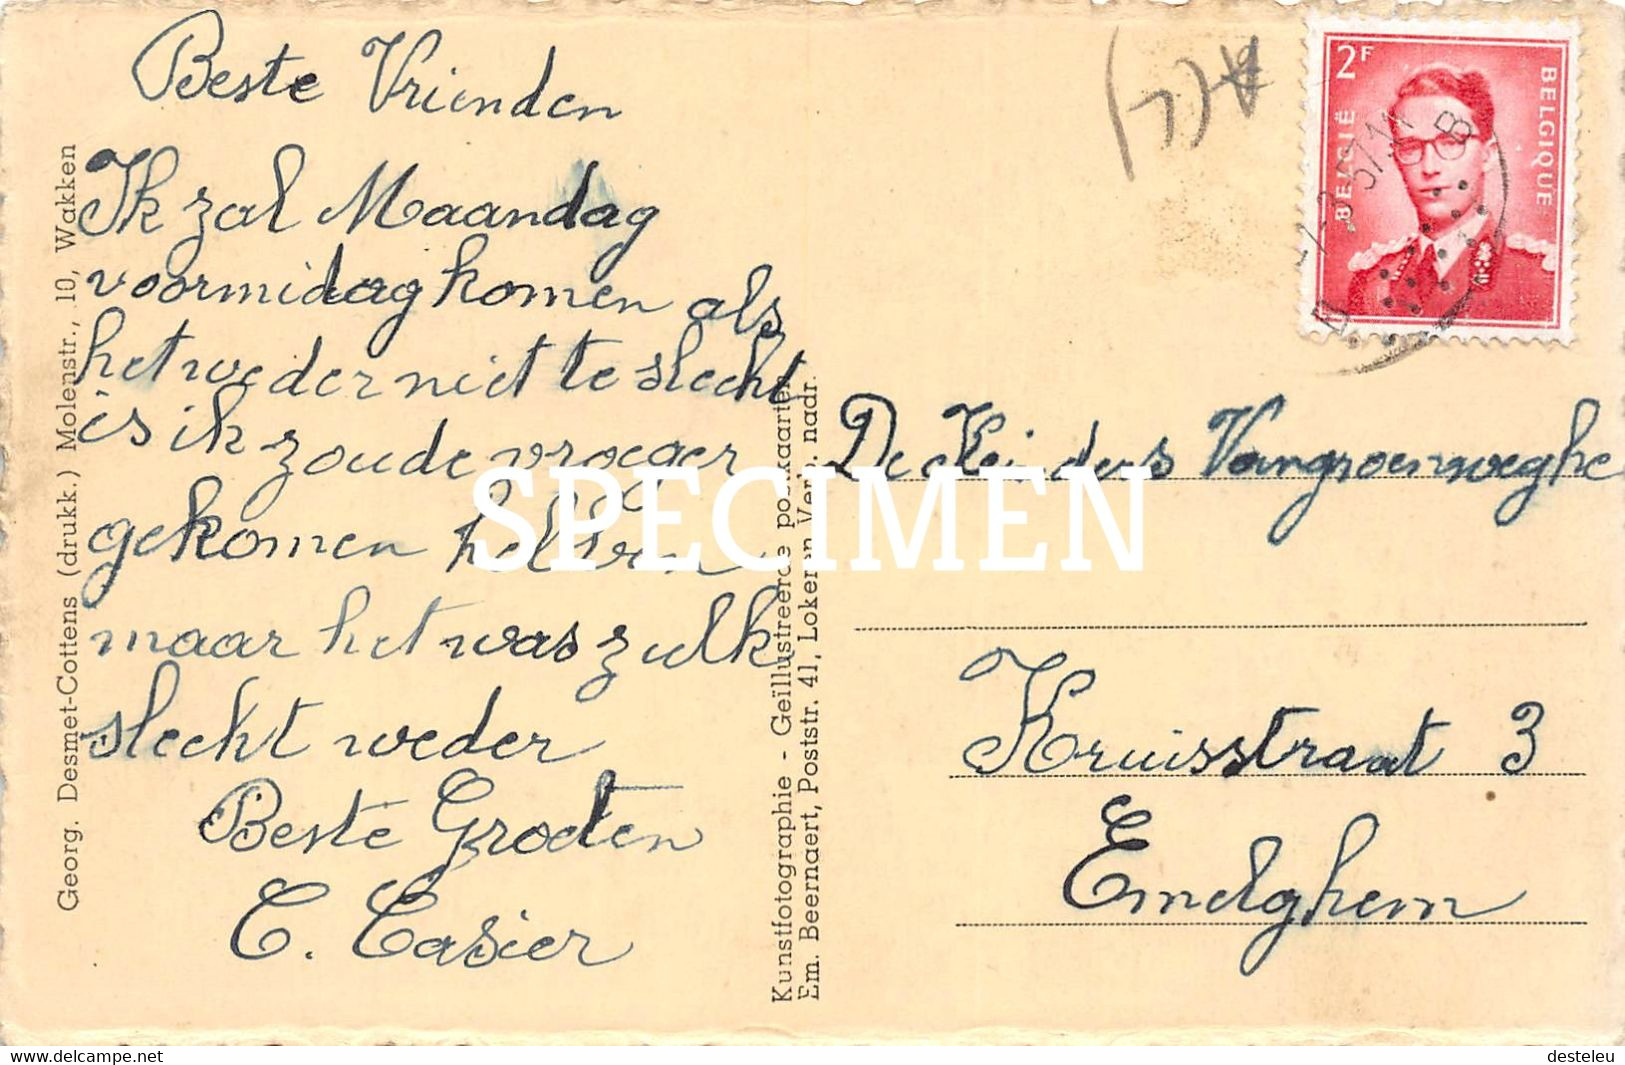 Beste Vrienden
Ik zal Maandag
voormidag komen als
het weder niet te slecht
is ik zoude vroeger
gekomen
maar het was zulk
slecht weder
Beste Groeten
C. Casier
Georg. Desmet-Cottens (drukk.) Molenstr., 10, Wakken
Kunstfotographie - Geïllustreerde postkaarten
Em. Beernaert, Poststr. 41, Lokeren Verb. nadr.
SPECIMEN
2F
BELGIË
BELGIQUE
De Kei ders Vangroenweghe
Kruisstraat 3
Emelghem
Delcampe.net website
desteleu